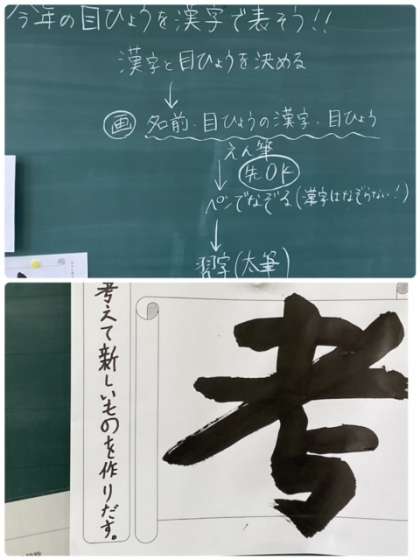 今年の目ひょうを漢字で表そう!!
漢字と目ひょうを決める
↓
画 名前・目ひょうの漢字・目ひょう
えん筆
先OK
↓
ペンでなぞる(漢字はなぞらない!)
↓
習字(太筆)
考えて新しいものを作りだす。
考